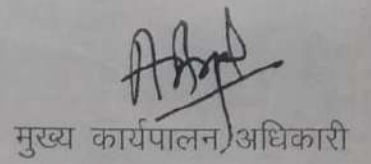 मुख्य कार्यपालन अधिकारी